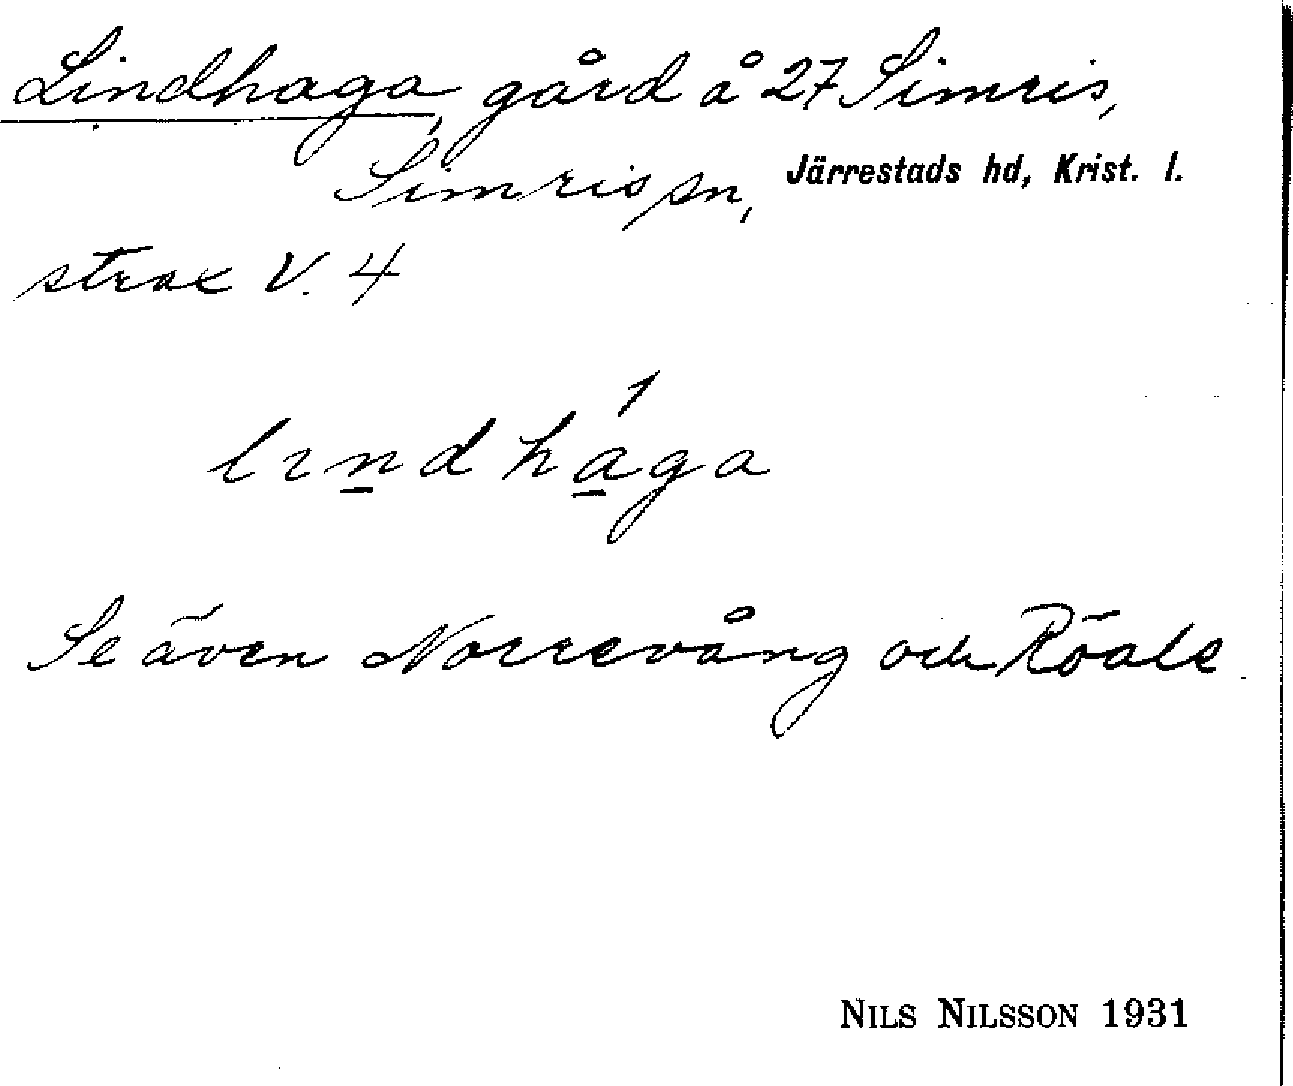 Lindhaga, gård å 27 Simris,
Simris sn, Järrestads hd, Krist. l.
strax V. 4
lındhága
Se även Norrevång och Röale
NILS NILSSON 1931